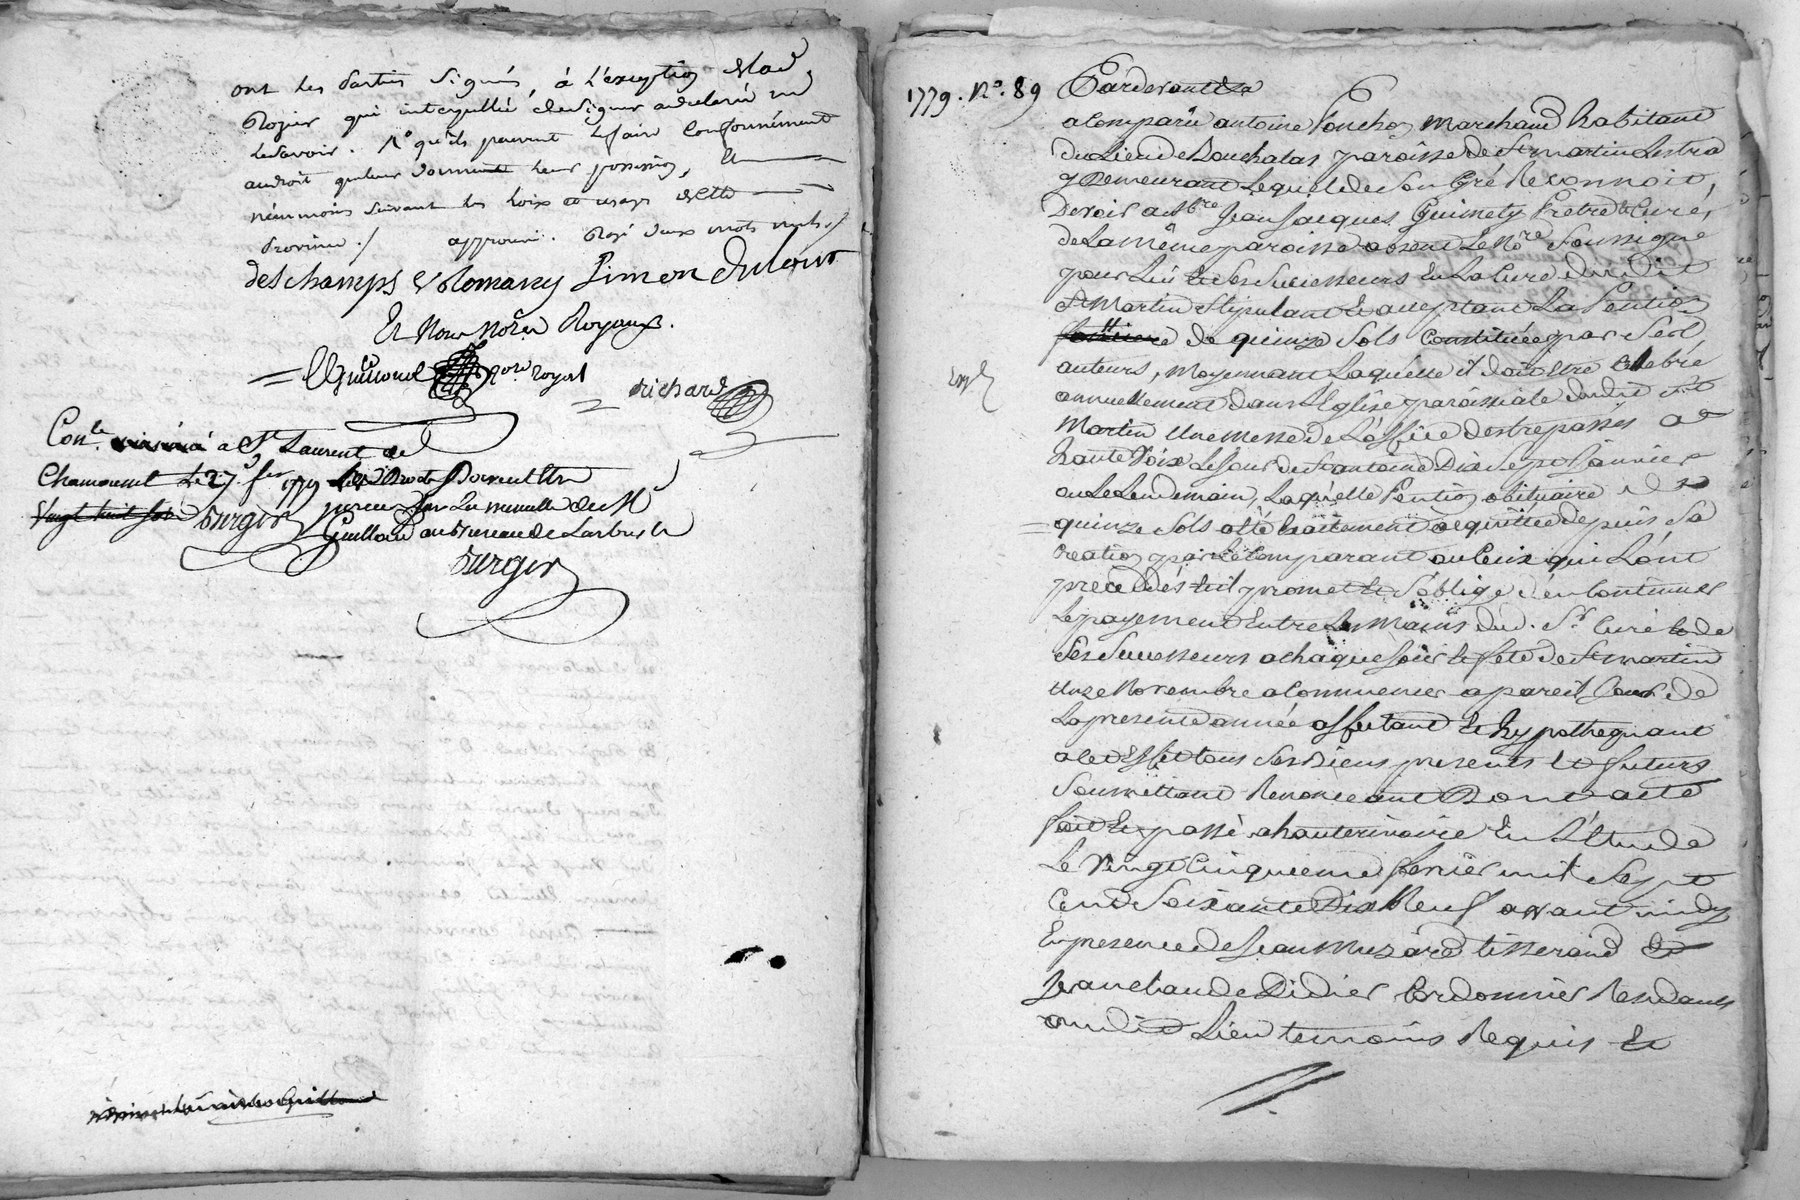 ont les parties signés, à l'exception dlad.
Rozier qui interpellée de signer a declaré ne
le savoir. N° qu'ils peuvent le faire conformément
au droit que leur donne leur possession, Et
néanmoins suivant les Loix et usage de cette
Province ./ approuvé. Rayé deux mots nuls ./
deschamps Colomany Simon
Et Nous Nores Royaux.
nore royal
richard
Conlé a St Laurent de
Chamousset le 27 fer 1779
vingt huit sols Surgis
Guillon au Bureau de Larbresle
Surgis
1779. No. 89 Pardevant &a
a Comparû antoine Ponchon Marchand habitant
du Lieu de Bouchalas paroisse de St martin Lestra
y Demeurant Lequel de son Gré Reconnoit,
Devoir a Mre Jean Jacques Guimety Prêtre & Curé
de La même paroisse absent Le Nore Soussigné
pour Lui Et Ses Successeurs En La Cure dudit
St Martin Stipulant Et acceptant La Pention
de quinze Sols Constituée par Sesd
auteurs, Moyennant Laquelle il doit Etre Celebré
annuellement dans L'Eglise paroissiale dudit St
Martin Une Messe de L'office des trepassés a
haute Voix Le Jour de St antoine Dix Sept Janvier
ou Le Lendemain, Laquelle Pention obituaire de
quinze Sols a Eté Exactement acquittée depuis Sa
Creation par Le Comparant ou Ceux qui L'ont
precedés Et il promet Et S'oblige d'en Continuer
Le payement Entre Les Mains dud. Sr Curé Et de
Ses Successeurs a chaque Jour Et fete de St martin
Onze Novembre a Commencer a pareil Jour de
La presente année affectant Et hypothequant
a Cet Effet tous Ses Biens presents Et futurs
Soumettant Renonceant Dont acte
fait Et passé a hauterivoire En L'Etude
Le Vingt Cinquieme fevrier mil Sept
Cent Soixante Dix Neuf avant midy
En presence de Jean Muzard tisserand Et
Jean claude Didier Cordonnier Residants
audit Lieu temoins Requis Et